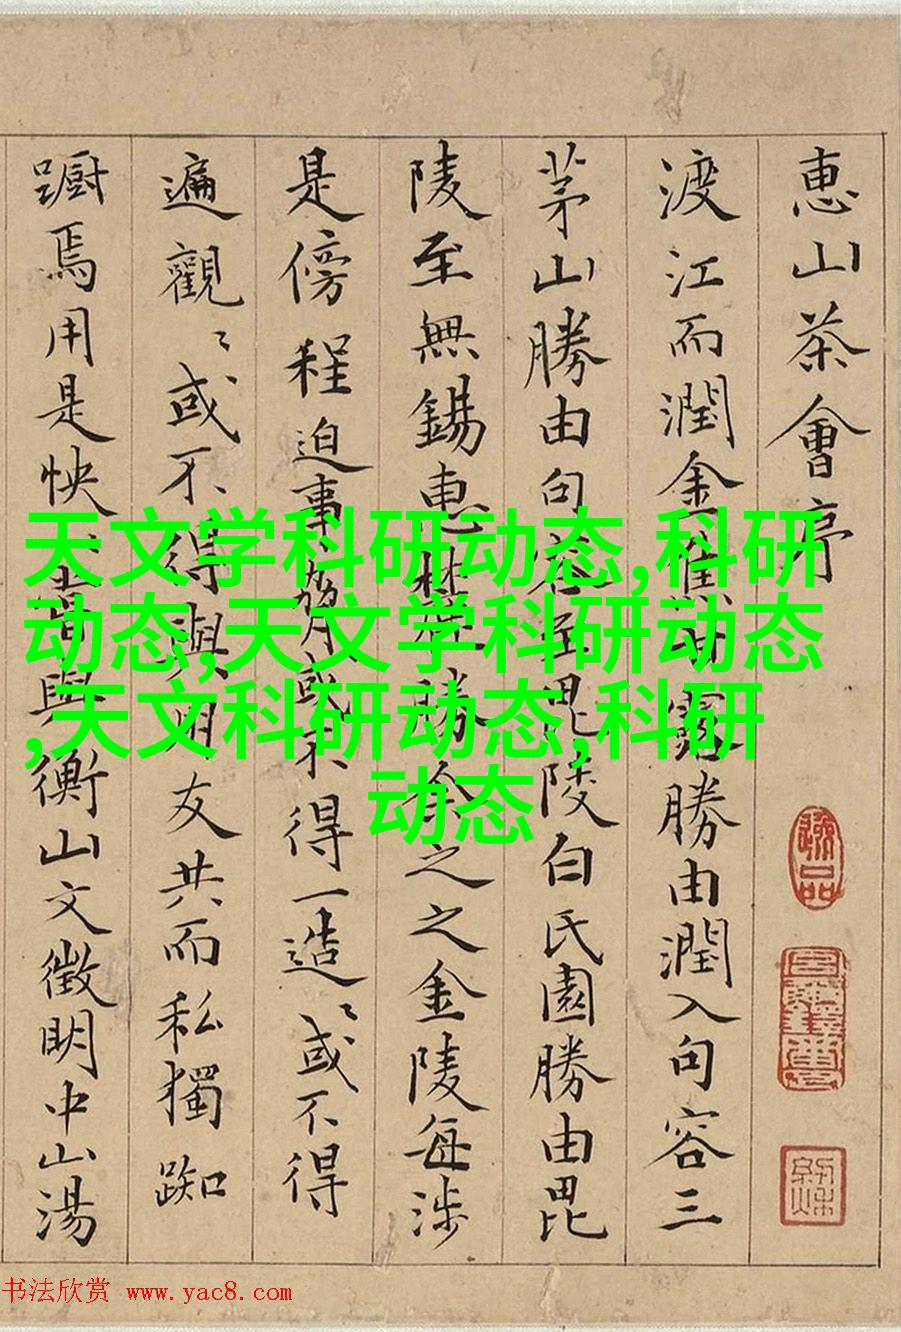 惠山茶會序
渡江而潤金焦甘露勝由潤入句容三
茅山勝由句容至毘陵白氏園勝由毘
陵至無錫惠麓勝余之之金陵每涉
是傍程迫事或不得一造〻或不得
遍觀〻或不得與朋友共而私獨踟
蹰焉用是怏昔與衡山文徵明中山湯
天文学科研动态,科研
动态,天文学科研动态
,天文科研动态,科研
动态
书法欣赏 www.yac8.com